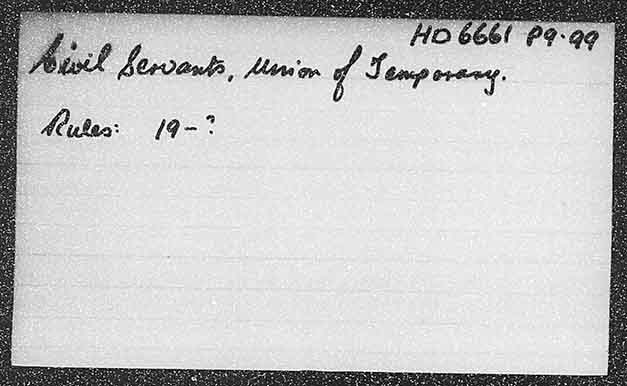 HD6661 P9.99
Civil Servants, Union of Temporary.
Rules: 19-?